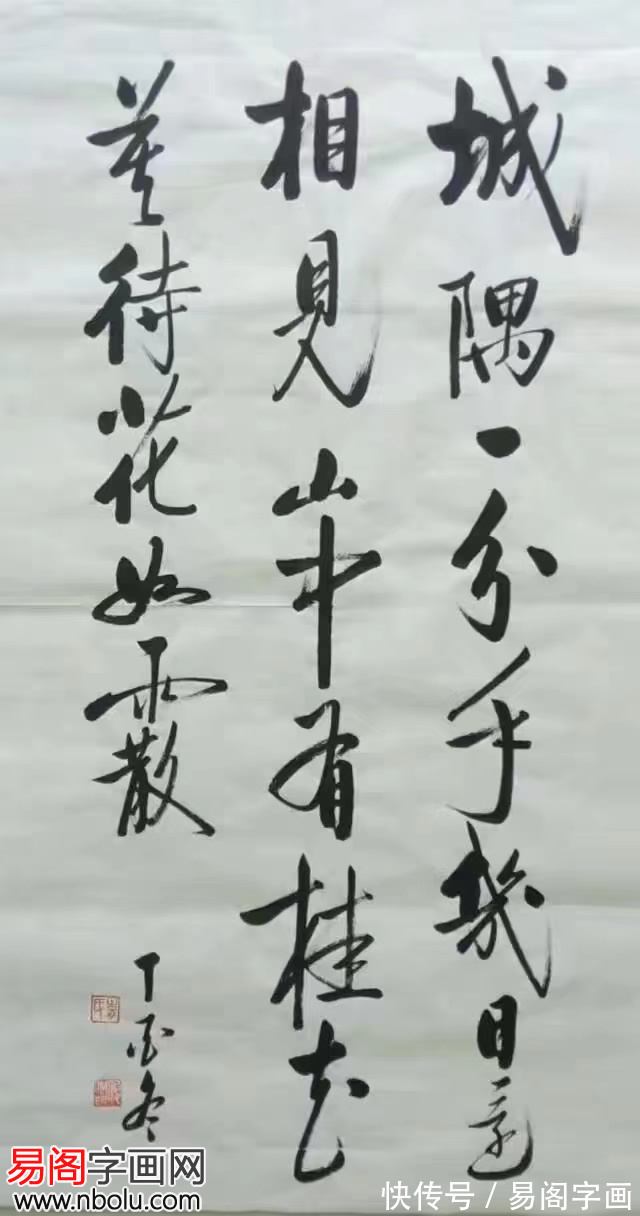 城隅一分手幾日還
相見山中有桂花
莫待花如霰
丁酉冬
易阁字画网
www.nbolu.com
快传号/易阁字画